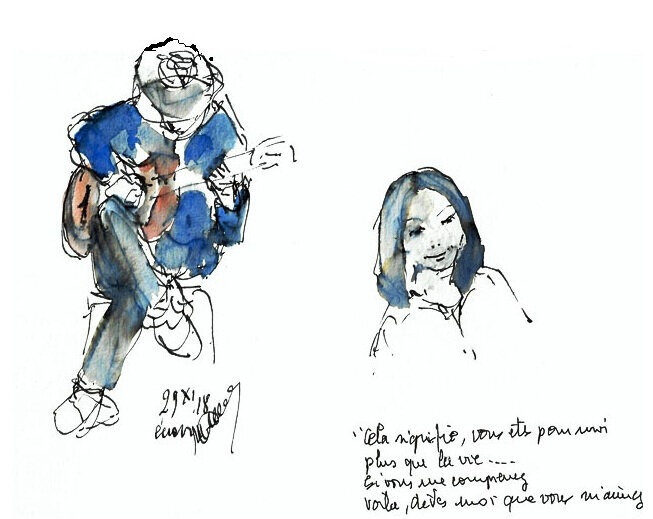 29 XI 18
"Cela signifie, vous êts pour moi
plus que la vie....
si vous me comprenez
voila, dites moi que vous m'aimez